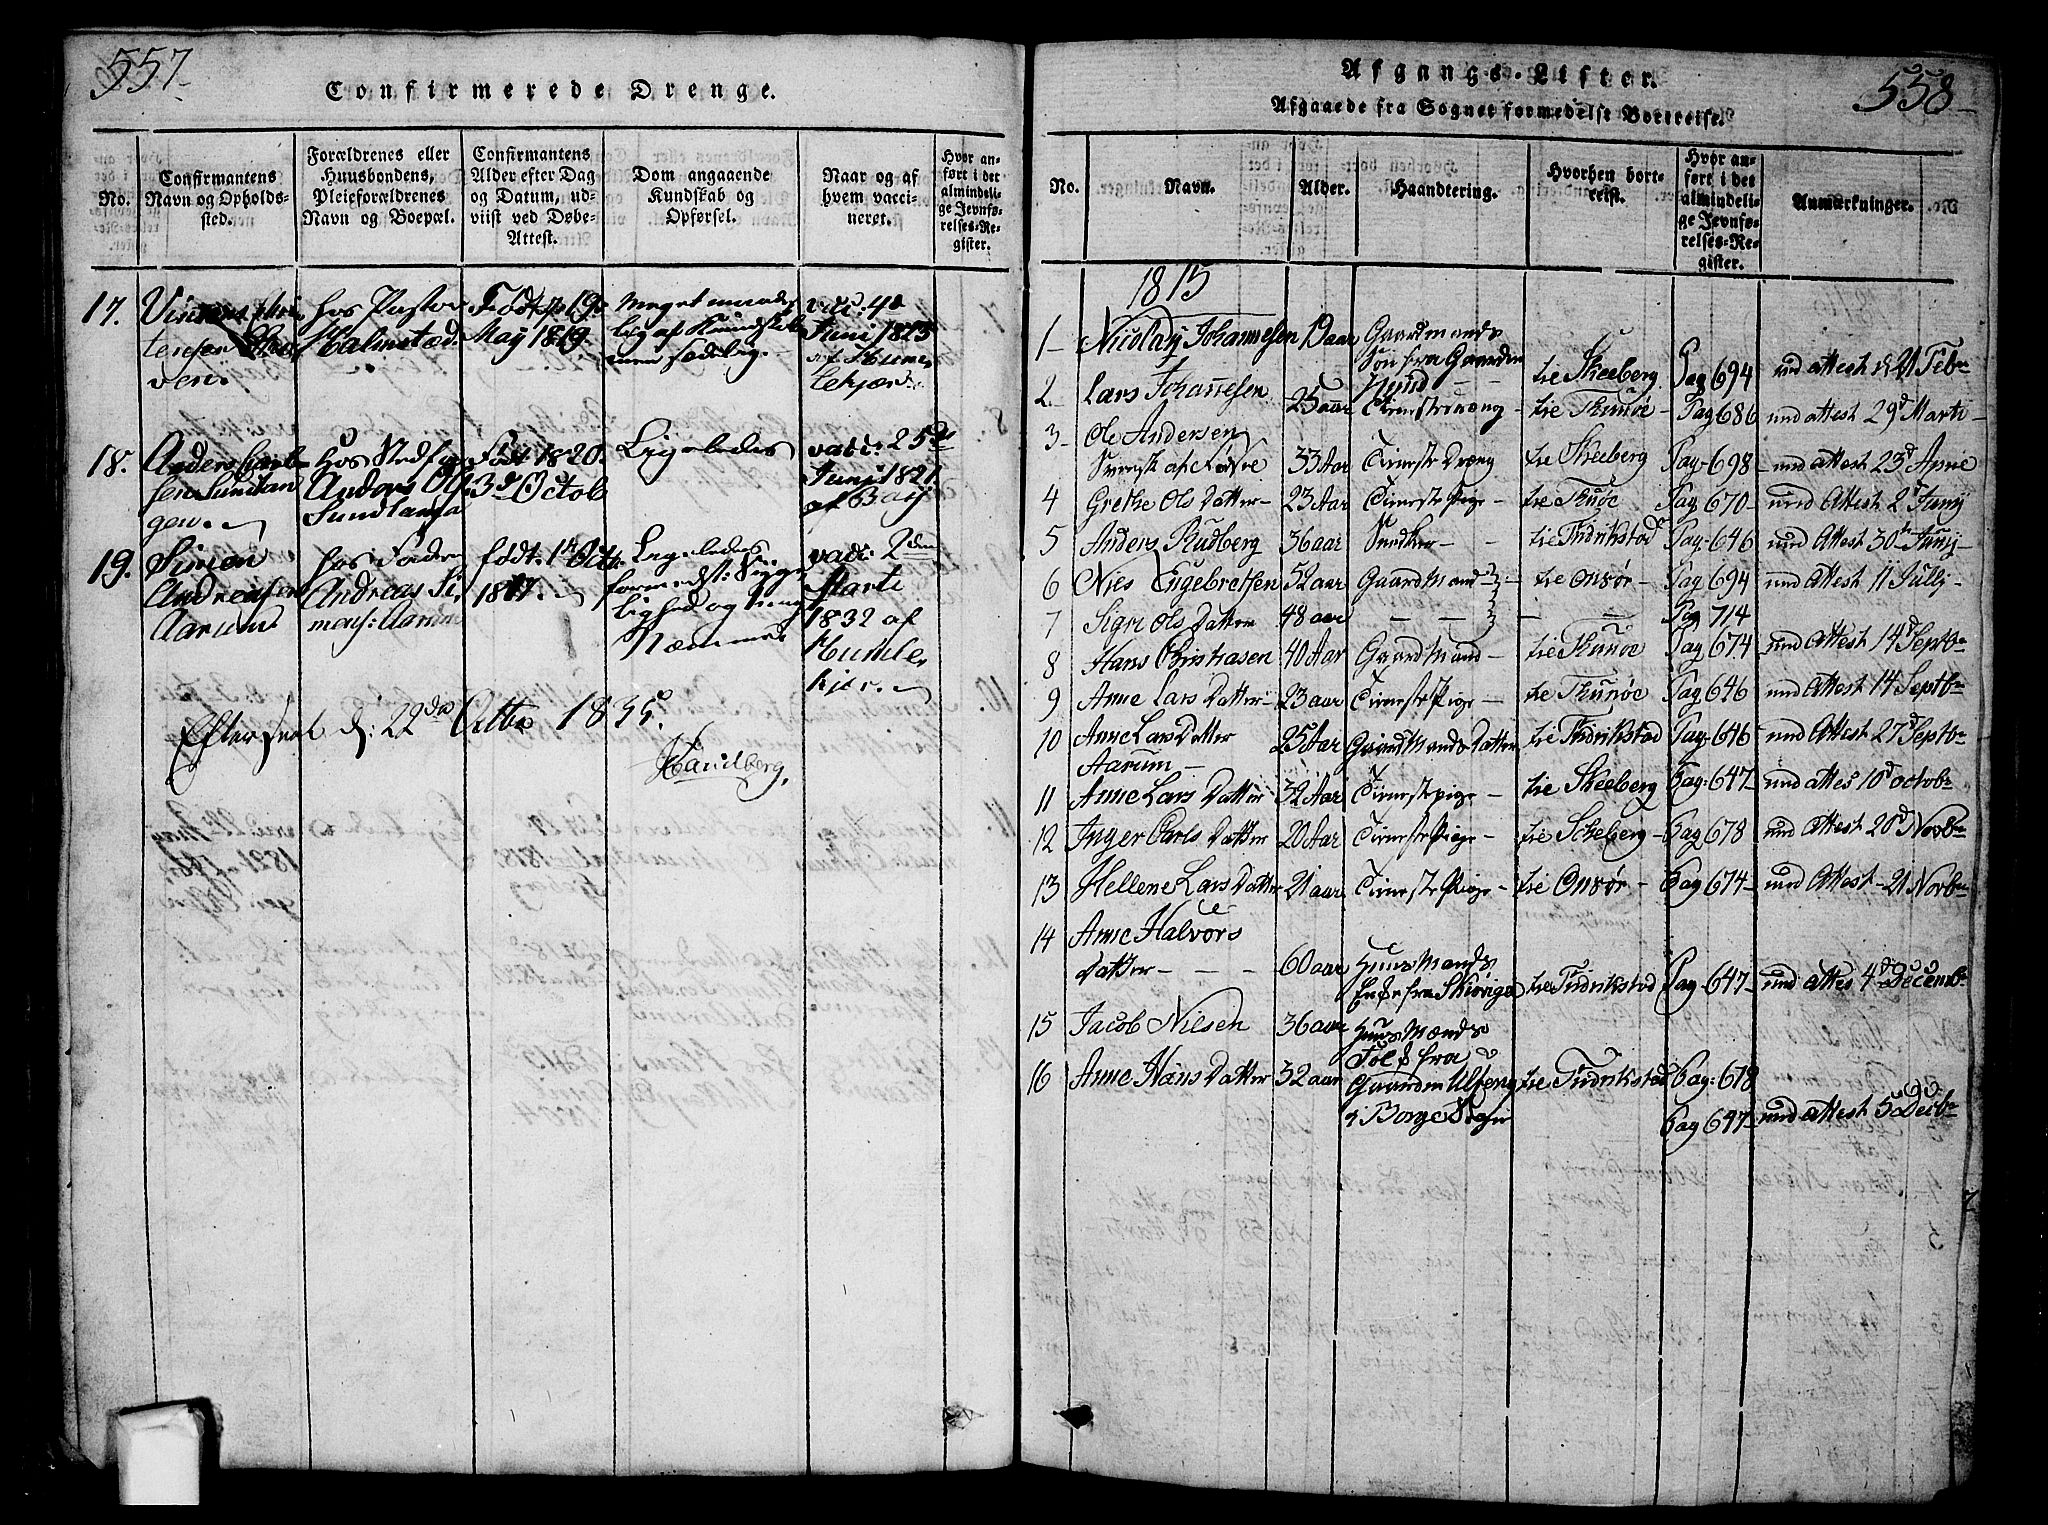 557
Confirmerede Drenge.
No.
Confirmantens
Navn og Opholds-
sted.
Forældrenes eller
Huusbondens,
Pleieforældrenes
Navn og Boepæl.
Confirmantens
Alder efter Dag
og Datum, ud-
viist ved Døbe-
Attest.
Dom angaaende
Kundskab og
Opførsel.
Naar og af
hvem vacci-
neret.
Hvor an-
ført i det
almindeli-
ge Jevnfø-
relses-Re-
gister.
17.
hos Pastor
Halmstad.
Født 19
May 1819.
Meget maade
lig af Kundskab
men sædelig.
vac: 4
Juni 1823
af Humle
kjær
18.
Anders
sen Sundlan
gen.
Hos Stedfar
Anders Ols
Sundlanga
Født 1820.
3d Octob
Ligeledes
vac: 25de
Juni 1821
af Bay
19.
Simen
Andreasen
Aarum
hos Fader
Andreas Si,
mens: Aarum
født 1 Octb.
1817.
Ligeledes
formedst: Sygge
lighed og ring
Nemme
vac: 2den
Marti
1832 af
Humle,
kjær.
Efter seet d: 22de Octbr 1835.
Handberg,
558
Afgangs-Lister.
Afgaaede fra Sognet formedelst Bortreise.
No.
Navn.
Alder.
Haandtering.
Hvorhen bort-
reist.
Hvor an-
ført i det
almindeli-
ge Jevnfø-
relses-Re-
gister.
Anmærkninger.
1815
1 Nicolay Johannesen 19 aar Gaardmands
Søn fra Gaarden
Nyud til Skeeberg Pag 694 med attest d 21 Febr
2 Lars Johannesen 25 aar Tienestedræng til Thunøe Pag 686 med attest 29d Marti
3 Ole Andersen
Svensk af Fødsel 33 Aar Tieneste Dræng til Skeeberg Pag 698 med attest 23d
4 Grethe Ols Datter 23 Aar Tieneste Pige til Thunøe Pag 670 med Attest 2d Junij
5 Anders Rudberg 36 aar Snedker til Fridrikstad Pag: 646 med Attest 30te Junij
6 Niels Engebretsen 52 aar Gaardmand til Onsør Pag 694 med Attest 11 Julij
7 Sigri Ols Datter 48 aar — — — — Pag 714
8 Hans Christiasen 40 Aar Gaardmand til Thunøe Pag 674 med attest 14d Septbr
9 Anne Lars Datter 23 aar Tieneste Pige til Thunøe Pag 646 med Attest 14 Septbr
10 Anne Lars Datter
Aarum 25 Aar Gaardmands Datter til Fridrikstad Pag 646 med Attest 27d Septbr
11 Anne Lars Datter 32 Aar Tienestepige til Skeeberg Pag: 647 med attes 10d octobr
12 Inger Carls Datter 20 Aar Tieneste Pige til Schelberg Pag 678 med Attest 20d Novbr
13 Hellene Lars Datter 21 aar Tieneste Pige til Onsør Pag 674 med Attest 21 Novbr
14 Anne Halvors
datter 60 aar Huusmands
Enke fra til Fridrikstad Pag 647 med attes 4d Decembr
15 Jacob Nilsen 36 aar Huus Mænds
Folk fra
16 Anne Hans Datter 32 aar Gaarden til Fridrikstad Pag: 678
i Borge Sogn Pag 647 med attest 5 Decbr